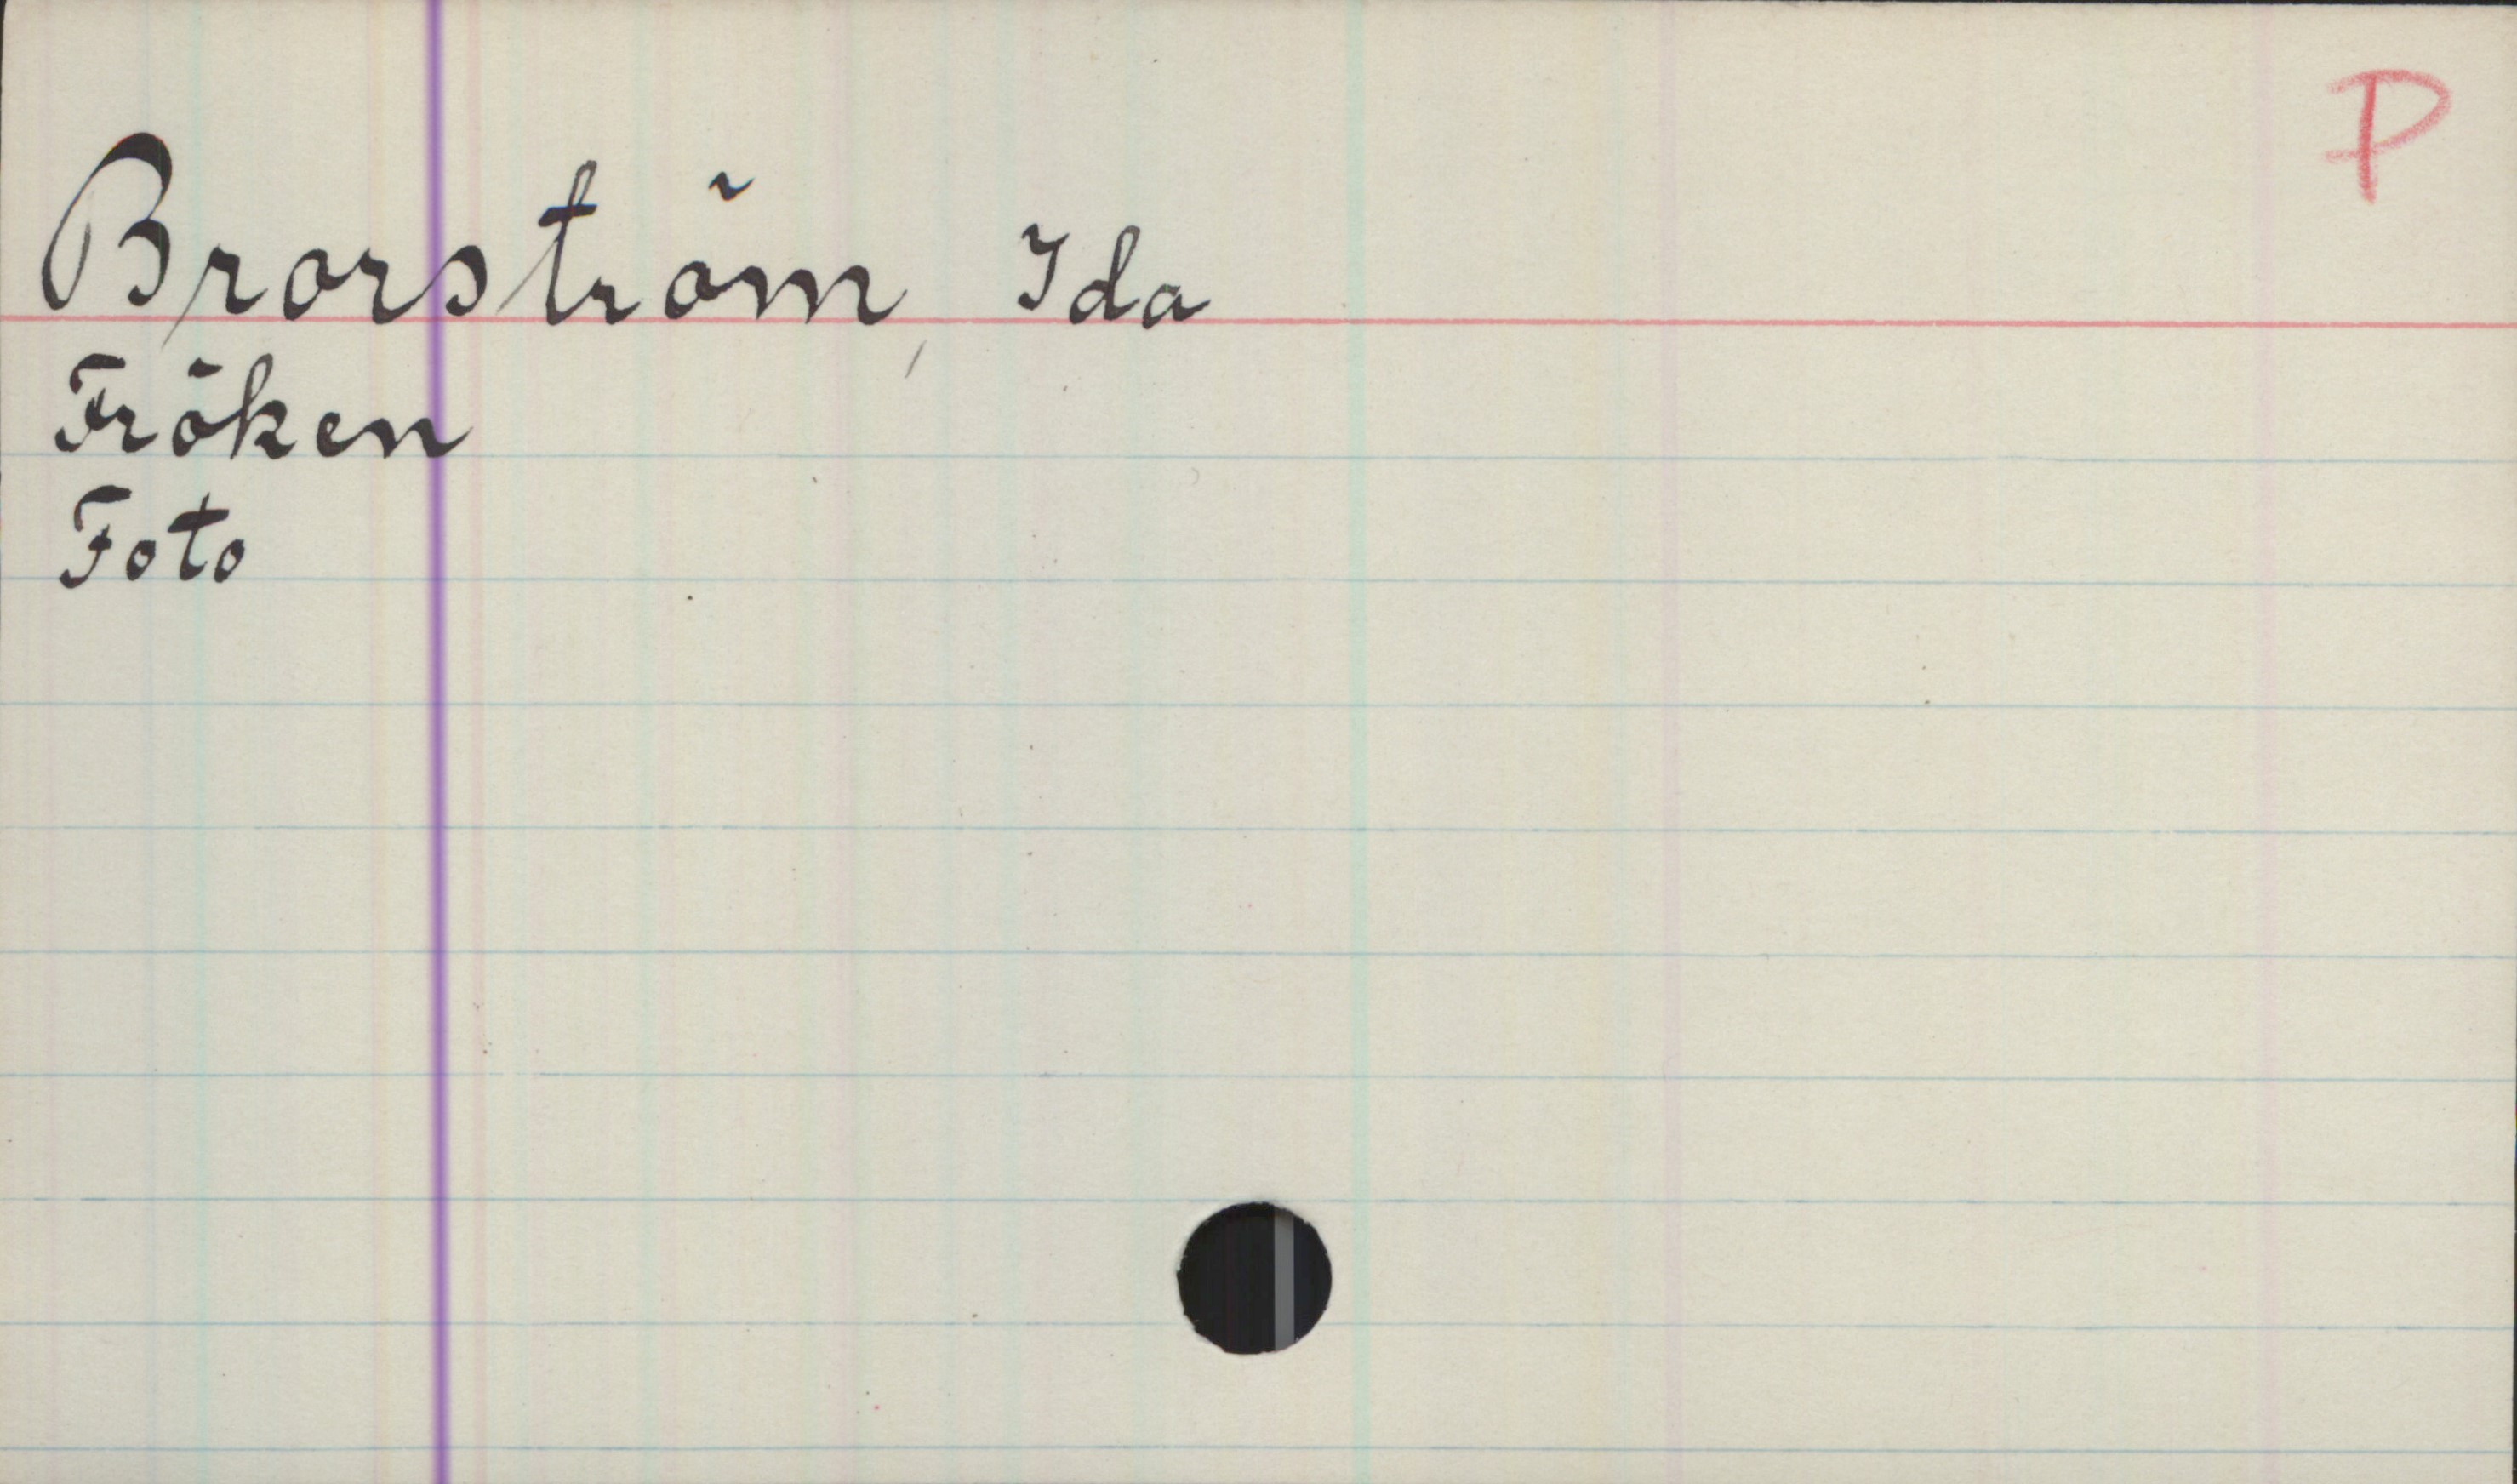 P
Brorström, Ida
Fröken
Foto